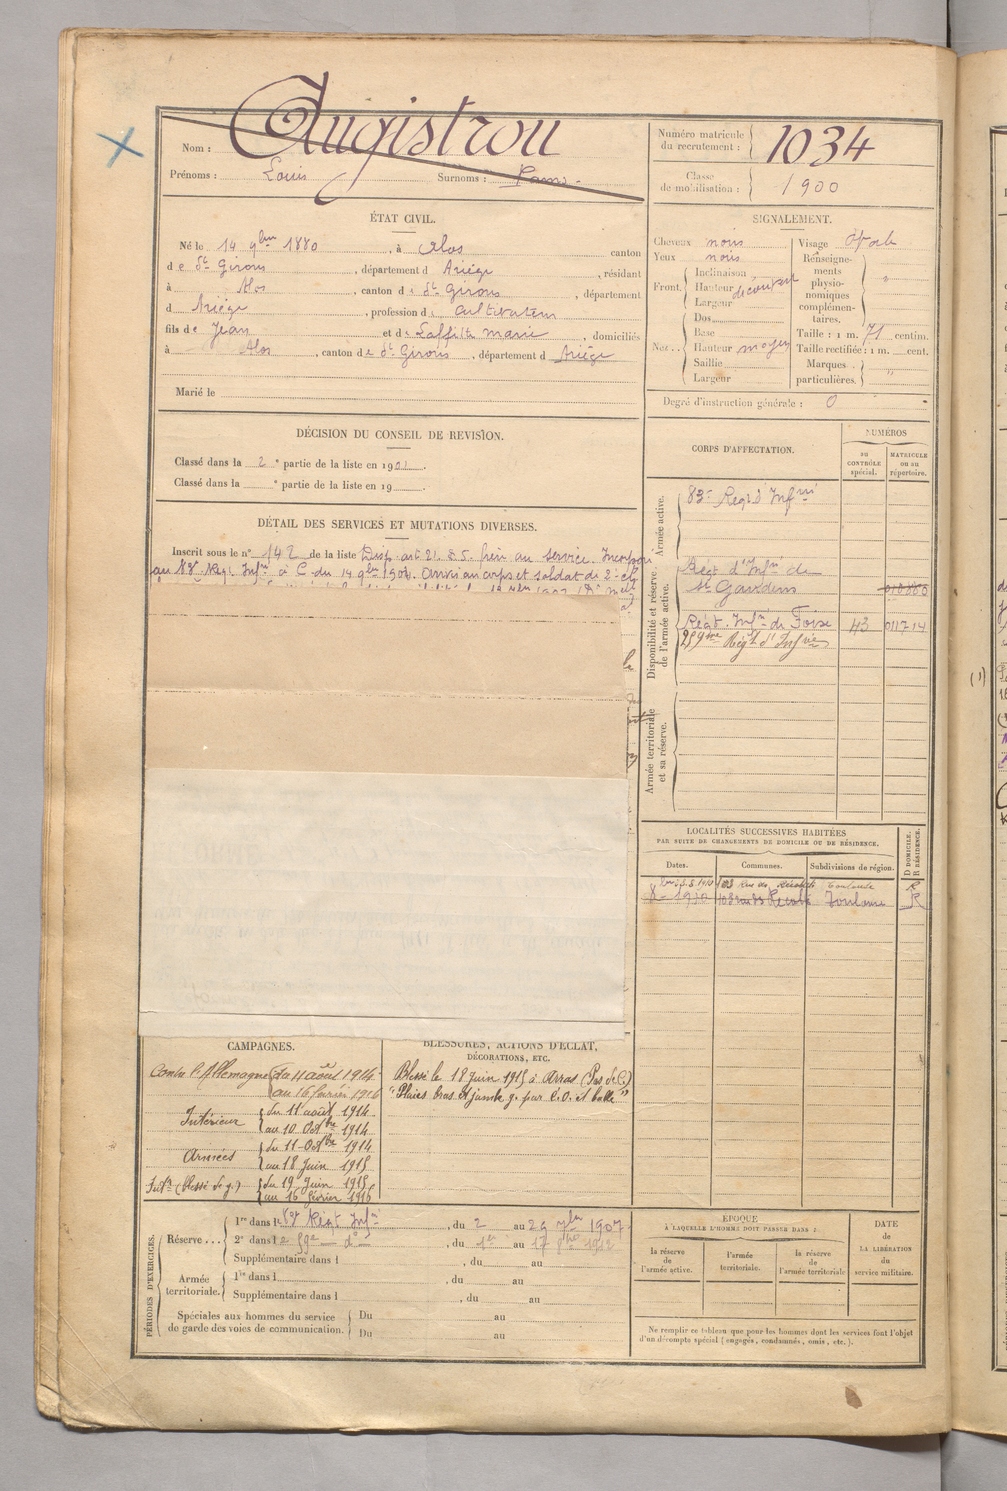 Nom : Augistrou
Prénoms : Louis Surnoms :
Numéro matricule du recrutement : 1034
Classe de mobilisation : 1900
ÉTAT CIVIL.
Né le 14 9bre 1880, à Alos canton
de St Girons, département d Ariège, résidant
à Alos, canton de St Girons, département
d Ariège, profession de cultivateur
fils de Jean et de Laffitte Marie, domiciliés
à Alos, canton de St Girons, département d Ariège
Marié le
SIGNALEMENT.
Cheveux noirs
Yeux noirs
Front. Inclinaison
Hauteur découvert
Largeur
Nez. Dos
Base
Hauteur moyen
Saillie
Largeur
Visage Ovale
Renseignements physionomiques complémentaires. "
Taille : 1 m. 71 centim.
Taille rectifiée : 1 m. cent.
Marques particulières. "
Degré d'instruction générale : 0
DÉCISION DU CONSEIL DE REVISION.
Classé dans la 2e partie de la liste en 1901.
Classé dans la e partie de la liste en 19
DÉTAIL DES SERVICES ET MUTATIONS DIVERSES.
Inscrit sous le n° 142 de la liste Disp. art. 21. § 5. frère au service. Incorporé
au 83e Régt Infrie à C. du 14 9bre 1901. Arrivé au corps et soldat de 2e cl.
CORPS D'AFFECTATION.
NUMÉROS
AU CONTRÔLE spécial.
MATRICULE ou au répertoire.
Armée active.
83e Régt d'Infrie
Disponibilité et réserve de l'armée active.
Régt d'Infrie de
St Gaudens
Régt. Infrie de Foix 43 011714
259ème Régt d'Infrie
Armée territoriale et sa réserve.
LOCALITÉS SUCCESSIVES HABITÉES
PAR SUITE DE CHANGEMENTS DE DOMICILE OU DE RÉSIDENCE.
Dates. Communes. Subdivisions de région. D DOMICILE. R RÉSIDENCE.
Toulouse R
Toulouse R
CAMPAGNES.
Contre l'Allemagne du 11 août 1914
au 16 février 1916
Intérieur du 11 août 1914
au 10 Octbre 1914
Armées du 11 Octbre 1914
au 18 Juin 1915
Intr (blessé de g.) du 19 Juin 1915
au 16 février 1916
BLESSURES, ACTIONS D'ÉCLAT,
DÉCORATIONS, ETC.
Blessé le 18 juin 1915 à Arras (Pas de C.)
"Plaies bras et jambe g. par é. o. et balle"
PÉRIODES D'EXERCICES.
Réserve... 1re dans l Régt Infie, du 2 au 29 7bre 1907
2e dans l e 59e — do —, du 1er au 17 1912
Supplémentaire dans l , du au
Armée territoriale. 1re dans l , du au
Supplémentaire dans l , du au
Spéciales aux hommes du service de garde des voies de communication. Du au
Du au
ÉPOQUE
À LAQUELLE L'HOMME DOIT PASSER DANS :
la réserve de l'armée active.
l'armée territoriale.
la réserve de l'armée territoriale
DATE de LA LIBÉRATION du service militaire.
Ne remplir ce tableau que pour les hommes dont les services font l'objet
d'un décompte spécial (engagés, condamnés, omis, etc.).